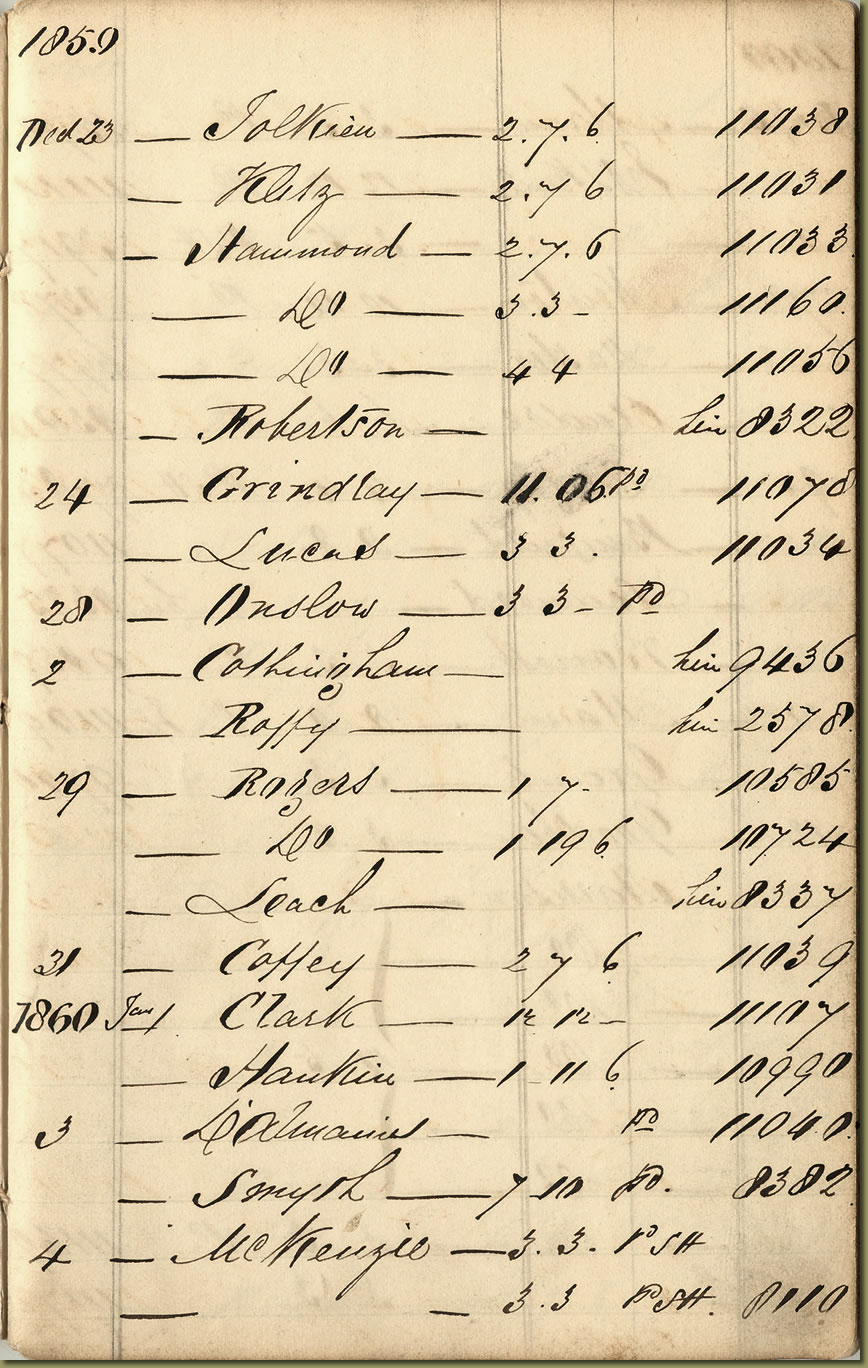 1859
Decr 23 — Tolkien — 2.7.6 11038
— Klitz — 2.7 6 11031
— Hammond — 2.7.6 11033
— Do — 3.3 - 11160
— Do — 4 4 11056
— Robertson — hin 8322
24 — Grindlay — 11.06 Pd 11078
— Lucas — 3 3 . 11034
28 — Onslow — 3 3 - Pd
2 — Cottingham — hin 9436
— Roffy — hin 2578
29 — Rogers — 1 7 - 10585
— Do — 1 19 6 10724
— Leach — hin 8337
31 — Coffey — 2 7 6 11039
1860 Jany 1 — Clark — 12 12 - 11107
— Hankin — 1 11 6 10990
3 — D'Almaine — Pd 11040
— Smyth — 7 10 Pd. 8382
4 — McKenzie — 3. 3. Pd SH
— — 3.3 Pd SH. 8110